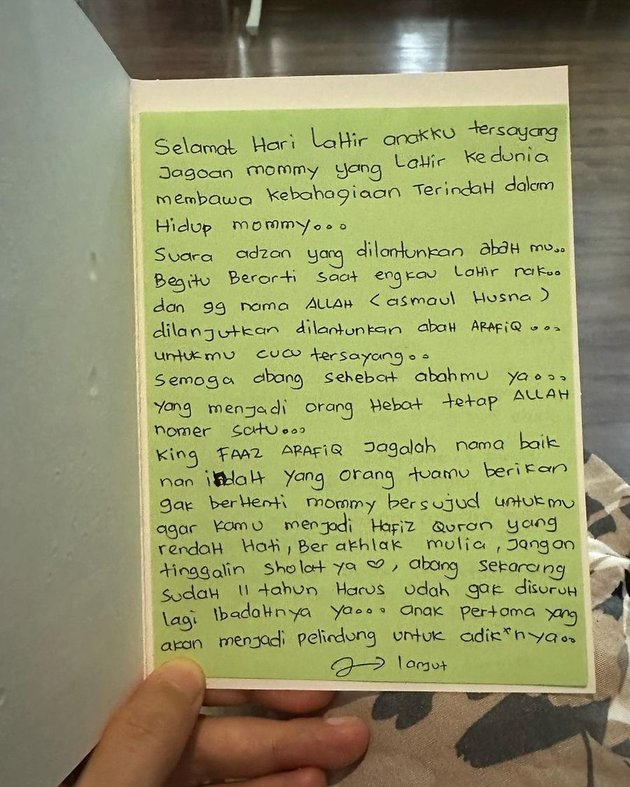 Selamat Hari Lahir anakku tersayang
Jagoan mommy yang Lahir kedunia
membawa kebahagiaan Terindah dalam
Hidup mommy...
Suara adzan yang dilantunkan abah mu...
Begitu Berarti saat engkau lahir nak...
dan 99 nama ALLAH (asmaul Husna)
dilanjutkan dilantunkan abah ARAFIQ ...
untukmu cucu tersayang..
Semoga abang sehebat abahmu ya...
yang menjadi orang Hebat tetap ALLAH
nomer satu...
King FAAZ ARAFIQ Jagalah nama baik
nan indah yang orang tuamu berikan
gak berhenti mommy bersujud untukmu
agar kamu menjadi Hafiz Quran yang
rendah Hati, Ber akhlak mulia, Jangan
tinggalin sholat ya ♡, abang sekarang
sudah 11 tahun Harus udah gak disuruh
lagi Ibadahnya ya... anak pertama yang
akan menjadi pelindung untuk adik"nya..
→ lanjut